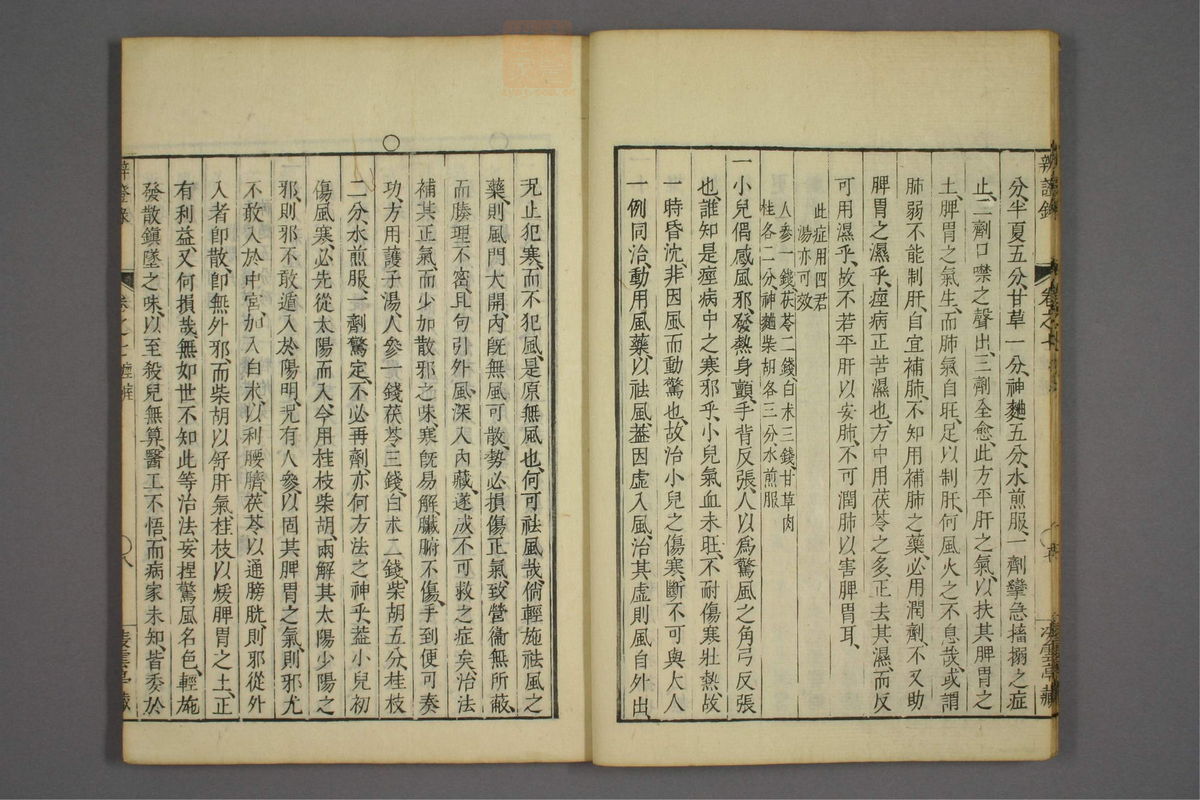 分、半夏五分、甘草一分、神麯五分、水煎服、一劑攣急搐搦之症
止、二劑口噤之聲出、三劑全愈、此方平肝之氣、以扶其脾胃之
土、脾胃之氣生、而肺氣自旺、足以制肝、何風火之不息哉、或謂
肺弱不能制肝、自宜補肺、不知用補肺之藥、必用潤劑、不又助
脾胃之濕乎、痙病正苦濕也、方中用茯苓之多、正去其濕、而反
可用濕乎、故不若平肝以安肺、不可潤肺以害脾胃耳、
此症用四君
湯亦可效
人參一錢茯苓二錢白朮三錢甘草肉
桂各二分、神麯柴胡各三分、水煎服
一小兒偶感風邪、發熱身顫、手背反張、人以爲驚風之角弓反張
也、誰知是痙病中之寒邪乎、小兒氣血未旺、不耐傷寒壯熱、故
一時昏沈、非因風而動驚也、故治小兒之傷寒、斷不可與大人
一例同治、動用風藥、以祛風、蓋因虛入風、治其虛則風自外出、
況止犯寒、而不犯風、是原無風也、何可祛風哉、倘輕施祛風之
藥、則風門大開、內旣無風可散、勢必損傷正氣、致營衛無所蔽、
而腠理不密、且勾引外風、深入內藏、遂成不可救之症矣、治法
補其正氣、而少加散邪之味、寒旣易解、臟腑不傷、手到便可奏
功、方用護子湯、人參一錢茯苓三錢、白朮二錢、柴胡五分、桂枝
二分、水煎服、一劑驚定、不必再劑、亦何方法之神乎、蓋小兒初
傷風寒、必先從太陽而入、今用桂枝柴胡、兩解其太陽少陽之
邪、則邪不敢遁入於陽明、況有人參、以固其脾胃之氣、則邪尤
不敢入於中宮、加入白朮、以利腰臍、茯苓以通膀胱、則邪從外
入者卽散、卽無外邪、而柴胡以舒肝氣、桂枝以煖脾胃之土、正
有利益、又何損哉、無如世不知此等治法、妄捏驚風名色、輕施
發散鎮墜之味、以至殺兒無算、醫工不悟、而病家未知、皆委於
辨證錄
卷之七 痙痱
八